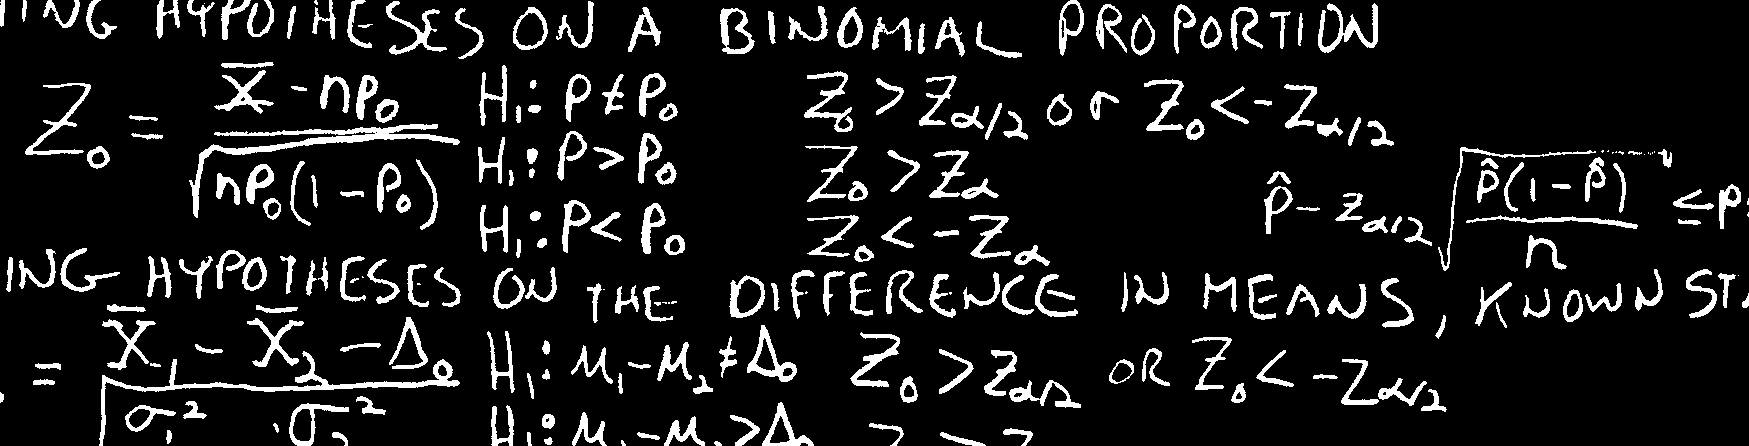 ING HYPOTHESES ON A BINOMIAL PROPORTION
Z₀ = (X̄ - np₀) / √(np₀(1 - p₀))
H₁: p ≠ p₀ Z₀ > Z_α/2 or Z₀ < -Z_α/2
H₁: p > p₀ Z₀ > Z_α
H₁: p < p₀ Z₀ < -Z_α
p̂ - z_α/2 √(p̂(1 - p̂) / n) ≤ p
ING HYPOTHESES ON THE DIFFERENCE IN MEANS, KNOWN
= (X̄₁ - X̄₂ - Δ₀) / √(σ₁² σ₂²
H₁: μ₁ - μ₂ ≠ Δ₀ Z₀ > Z_α/2 OR Z₀ < -Z_α/2
H₁: μ₁ - μ₂ > Δ₀